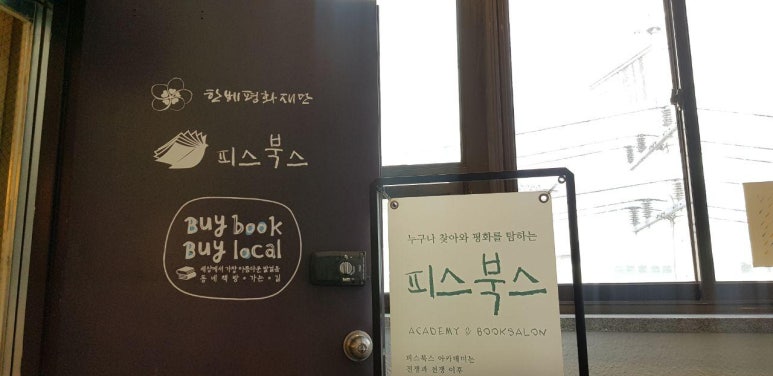 한베평화재단
피스북스
Buy book
Buy local
세상에서 가장 아름다운 발걸음
동네책방·가는·길
누구나 찾아와 평화를 탐하는
피스북스
ACADEMY & BOOKSALON
피스북스 아카데미는
전쟁과 전쟁 이후